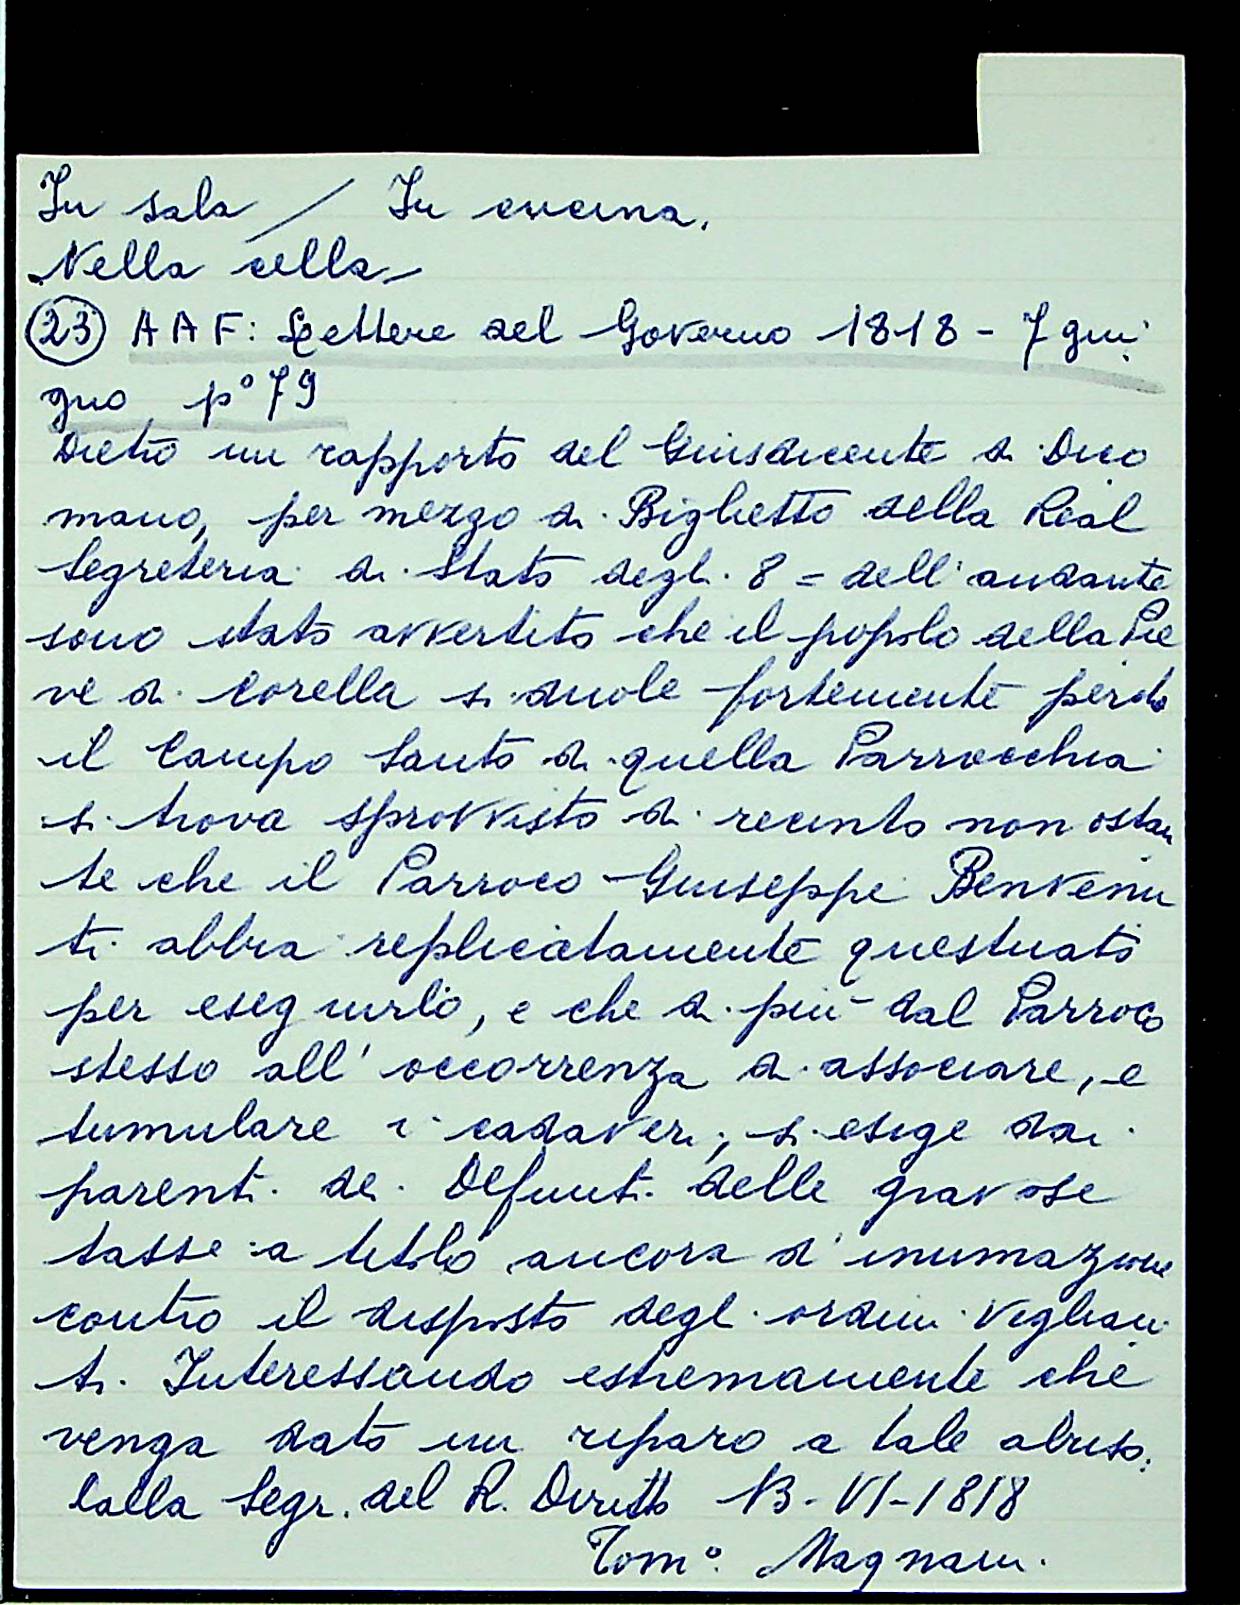 In sala / In cucina.
Nella cella
(23) AAF: Lettere del Governo 1818 - 7 giu
gno p° 79
Dietro un rapporto del Giusdicente di Dico
mano, per mezzo di Biglietto della Real
Segreteria di Stato degli 8 = dell'andante
sono stato avvertito che il popolo della Pie
ve di Corella si duole fortemente perchè
il Campo Santo di quella Parrocchia
si trova sprovvisto di recinto non ostan
te che il Parroco Giuseppe Benvenu
ti abbia replicatamente questuato
per eseguirlo, e che di più dal Parroco
stesso all'occorrenza di associare, e
tumulare i cadaveri, si esige dai
parenti dei Defunti delle gravose
tasse a titolo ancora d'inumazione
contro il disposto degl'ordini veglian
ti. Interessando estremamente che
venga dato un riparo a tale abuso.
Dalla Segr. del R. Diritto 13-VI-1818
Tom° Magnani.